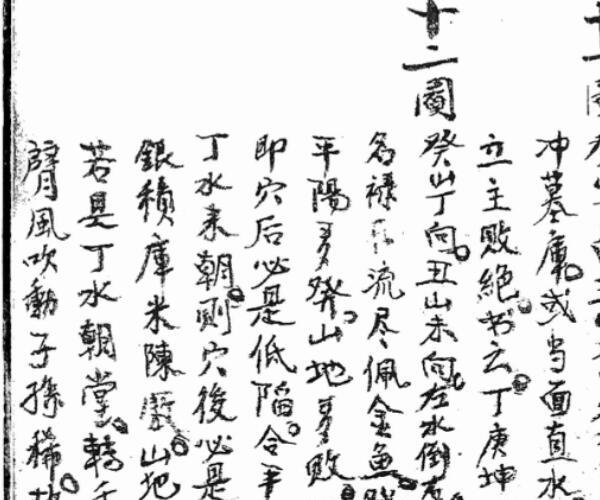 十一圖癸
冲墓庫或当面直水
立主敗絕书云丁庚坤
十二圖癸山丁向丑山未向左水倒右
名祿 流尽佩金魚
平陽多發山地多敗
即穴后必是低陷合平
丁水来朝則穴後必是
銀積庫米陳 山地
若是丁水朝堂轉
臂風吹動子孫稀